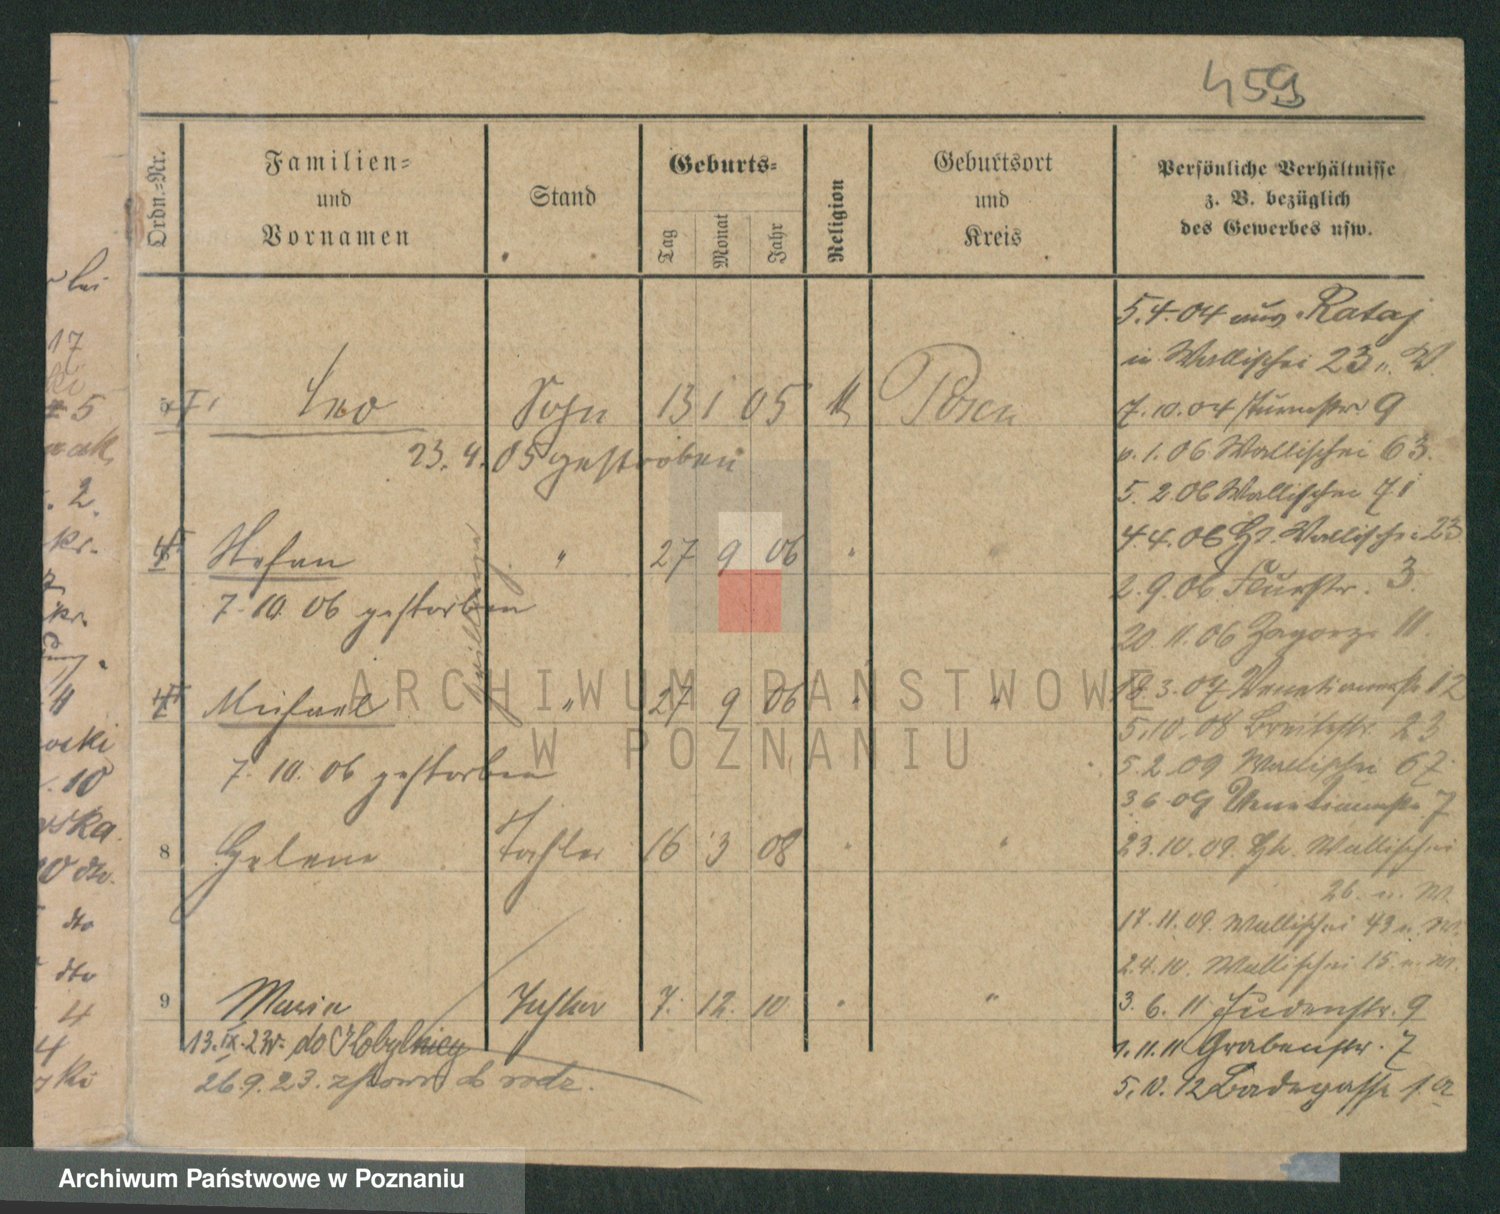 459
Ordn.=Nr.
Familien=
und
Vornamen
Stand
Geburts=
Tag
Monat
Jahr
Religion
Geburtsort
und
Kreis
Persönliche Verhältnisse
z. B. bezüglich
des Gewerbes usw.
Leo Sohn 13 1 05 Posen
23. 4. 05 gestorben
Stefan " 27 9 06 " "
7. 10. 06 gestorben
Zwillinge
Michael " 27 9 06 " "
7. 10. 06 gestorben
8 Helene Tochter 16 3 08 " "
9 Maria Tochter 7. 12. 10 " "
13. IX. 23 do Kobylnicy
26.9.23.
5.4.04 aus Rataj
in Wallischei 23 b. W.
7.10.04 Thurmstr 9
1.06 Wallischei 63.
5. 2 06 Wallischei 71
4.4.06 Wallischei 23
2.9.06 Flurstr. 3.
20 11.06 Zagorze 11.
18.3.07 Venetianerstr 12
5.10.08 Breitestr. 23
5.2.09 Wallischei 67
3 6 09 Venetianerstr 7
23.10.09 Wallischei
26. b. W.
17.11.09. Wallischei 43 b. W.
2.4.10. Wallischei 15. b. W.
3. 6. 11 Judenstr. 9
1.11.11 Grabenstr. 7
5.10.12 Badegasse 1a
lei
17
5
ak.
2.
kr.
kr.
4
ski
10
ska
dto.
dto
dto
4
4
ski
ARCHIWUM PAŃSTWOWE
W POZNANIU
Archiwum Państwowe w Poznaniu